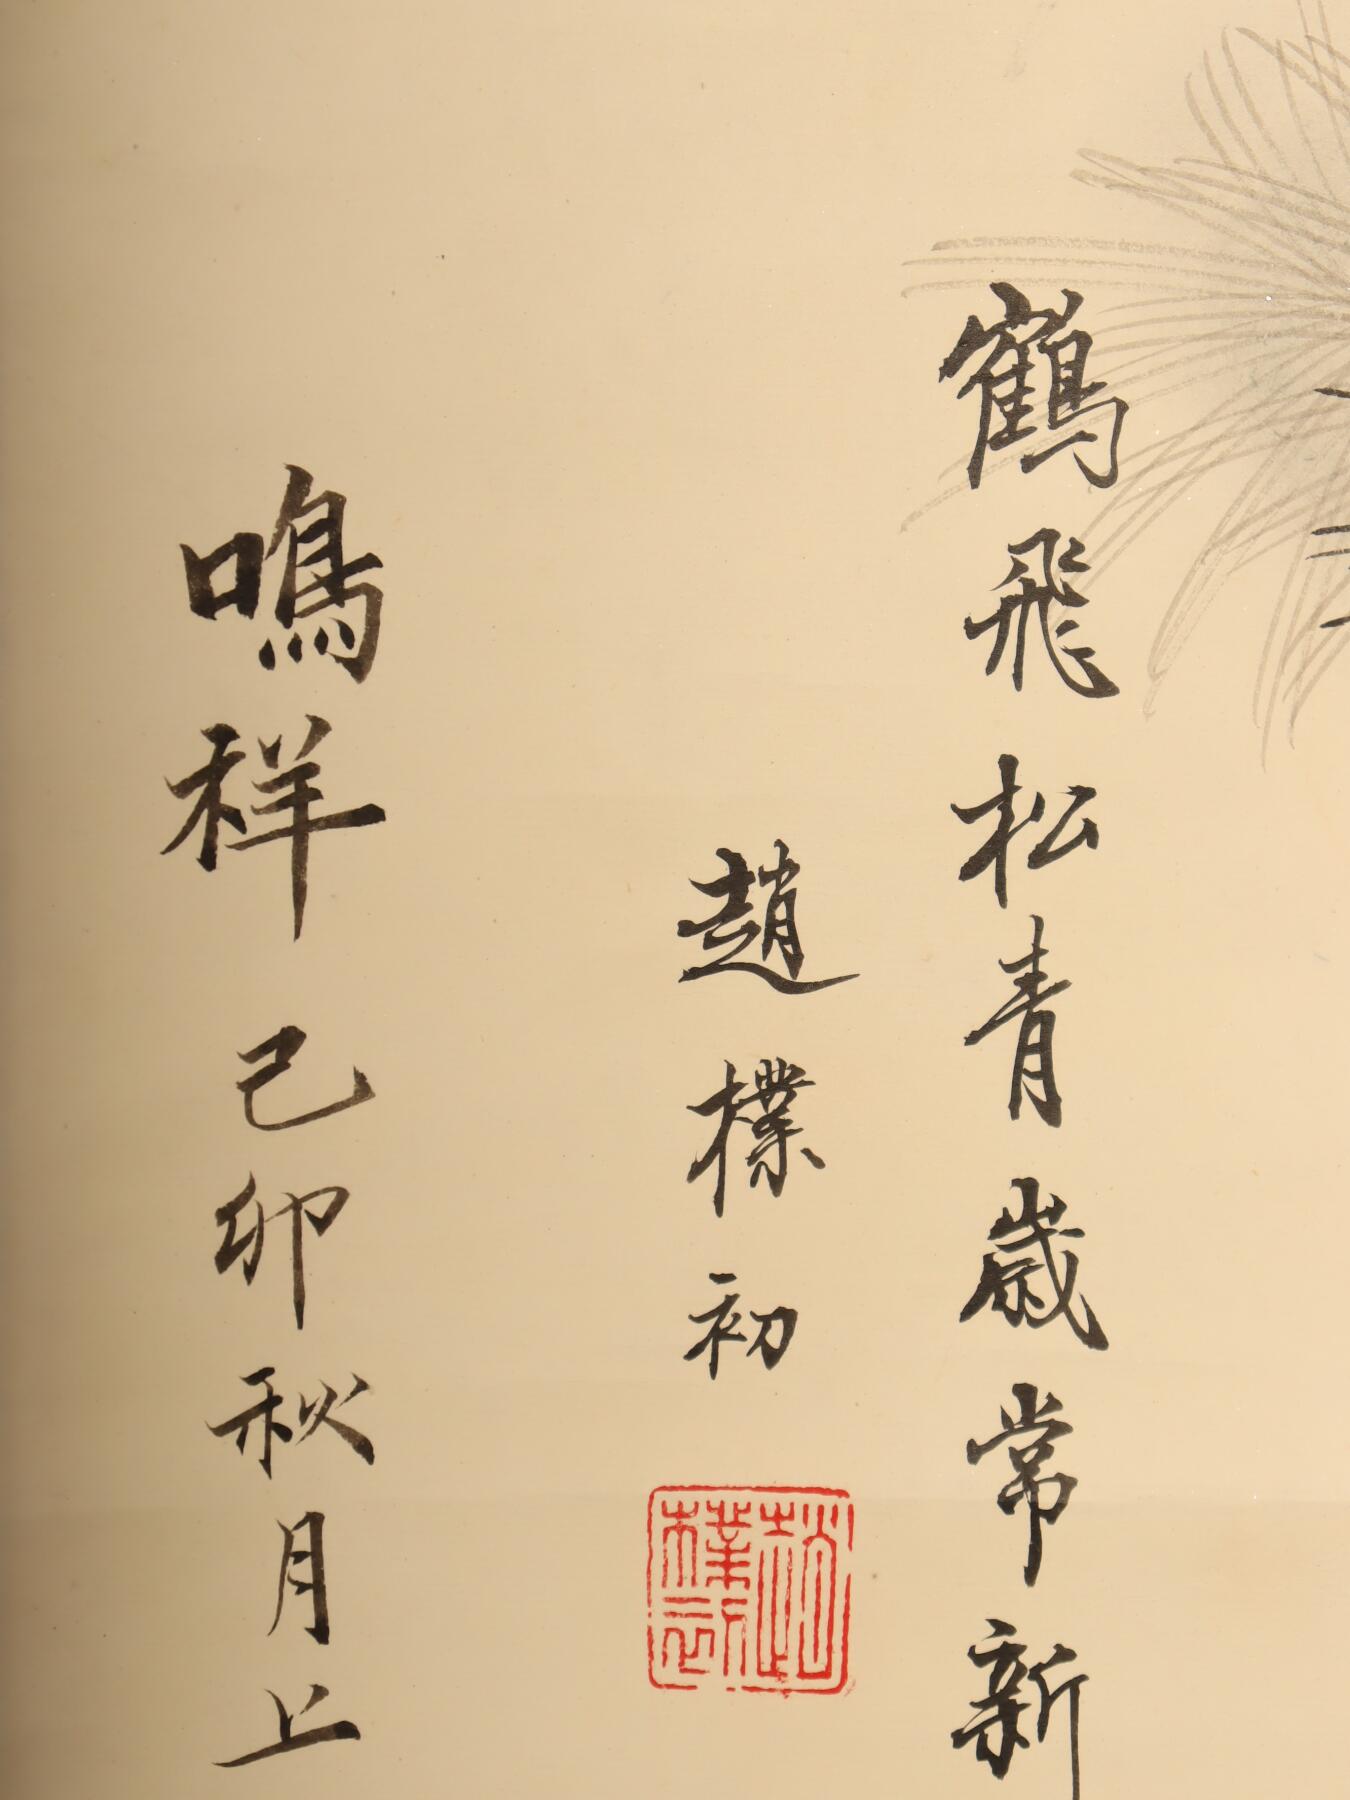 鶴飛松青歲常新
趙樸初
趙樸初
鳴祥己卯秋月上